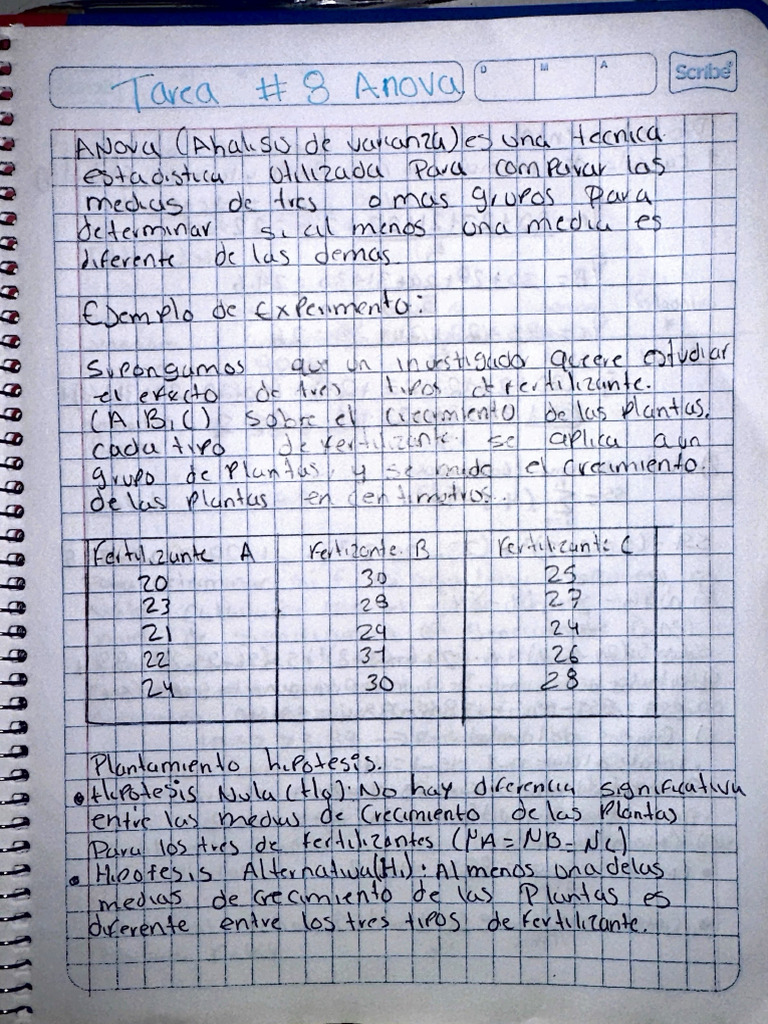 Tarea # 8 Anova
D M A
Scribe
ANOVA (Analisis de varianza) es una tecnica
estadistica utilizada Para comparar las
medias de tres o mas grupos Para
determinar si al menos una media es
diferente de las demas.
Ejemplo de Experimento:
Supongamos que un investigador quiere estudiar
el efecto de tres tipos de fertilizante.
(A, B, C) sobre el crecimiento de las Plantas.
cada tipo de fertilizante se aplica a un
grupo de Plantas, y se mide el crecimiento.
de las Plantas en centimetros.
Fertilizante A Fertizante. B Fertilizante C
20 30 25
23 28 27
21 29 24
22 31 26
24 30 28
Plantamiento hipotesis.
• Hipotesis Nula (H0): No hay diferencia significativa
entre las medias de Crecimiento de las Plantas
Para los tres de fertilizantes (μA = μB = μC)
• Hipotesis Alternativa (H1): Al menos una de las
medias de crecimiento de las Plantas es
diferente entre los tres tipos de fertilizante.